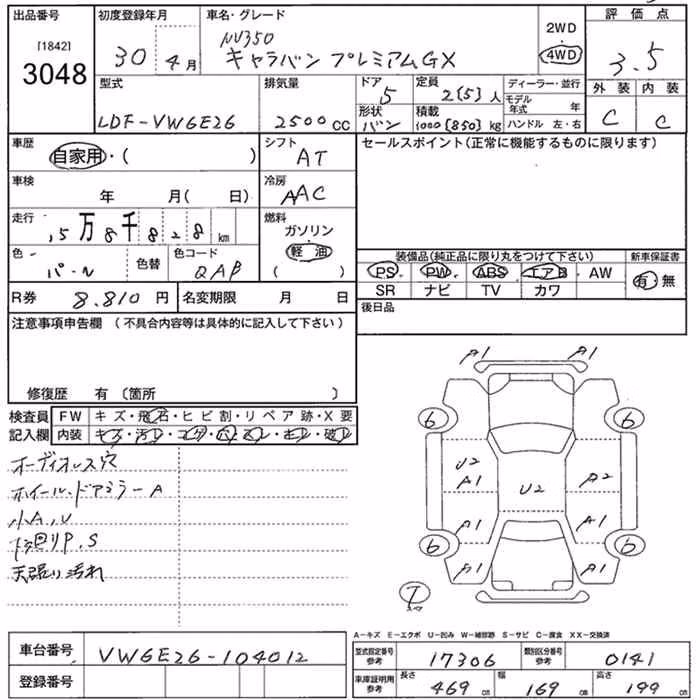 出品番号 [1842] 3048
初度登録年月 30年 4月
車名・グレード NV350 キャラバン プレミアムGX
2WD
4WD
評価点 3.5
外装 C 内装 C
型式 LDF-VW6E26
排気量 2500 CC
ドア 5
形状 バン
定員 2(5)人
積載 1000(850)kg
ディーラー・並行
モデル年式 年
ハンドル 左・右
車歴 自家用・( )
シフト AT
車検 年 月( 日)
冷房 AAC
走行 5万8千828km
燃料 ガソリン 軽油 ( )
色 パール
色替
色コード QAB
R券 8.810円
名変期限 月 日
セールスポイント(正常に機能するものに限ります)
装備品(純正品に限り丸をつけて下さい)
PS PW ABS エアB AW
SR ナビ TV カワ
新車保証書 有・無
後日品
注意事項申告欄 (不具合内容等は具体的に記入して下さい)
修復歴 有 (箇所 )
検査員記入欄
FW キズ・飛石・ヒビ割・リペア跡・X要
内装 キズ・汚レ・コゲ・穴・スレ・キレ・破レ
オーディオレス穴
ホイール・ドアミラーA
小A,U
下回りP,S
天張り汚れ
A1 A1
6 6
U2 A1 U2 A2
A1 A1
6 6
A1 A1
A-キズ E-エクボ U-凹み W-補修跡 S-サビ C-腐食 XX-交換済
車台番号 VW6E26-104012
登録番号
型式指定番号参考 17306
類別区分番号参考 0141
車庫証明用参考 長さ 469cm 幅 169cm 高さ 199cm